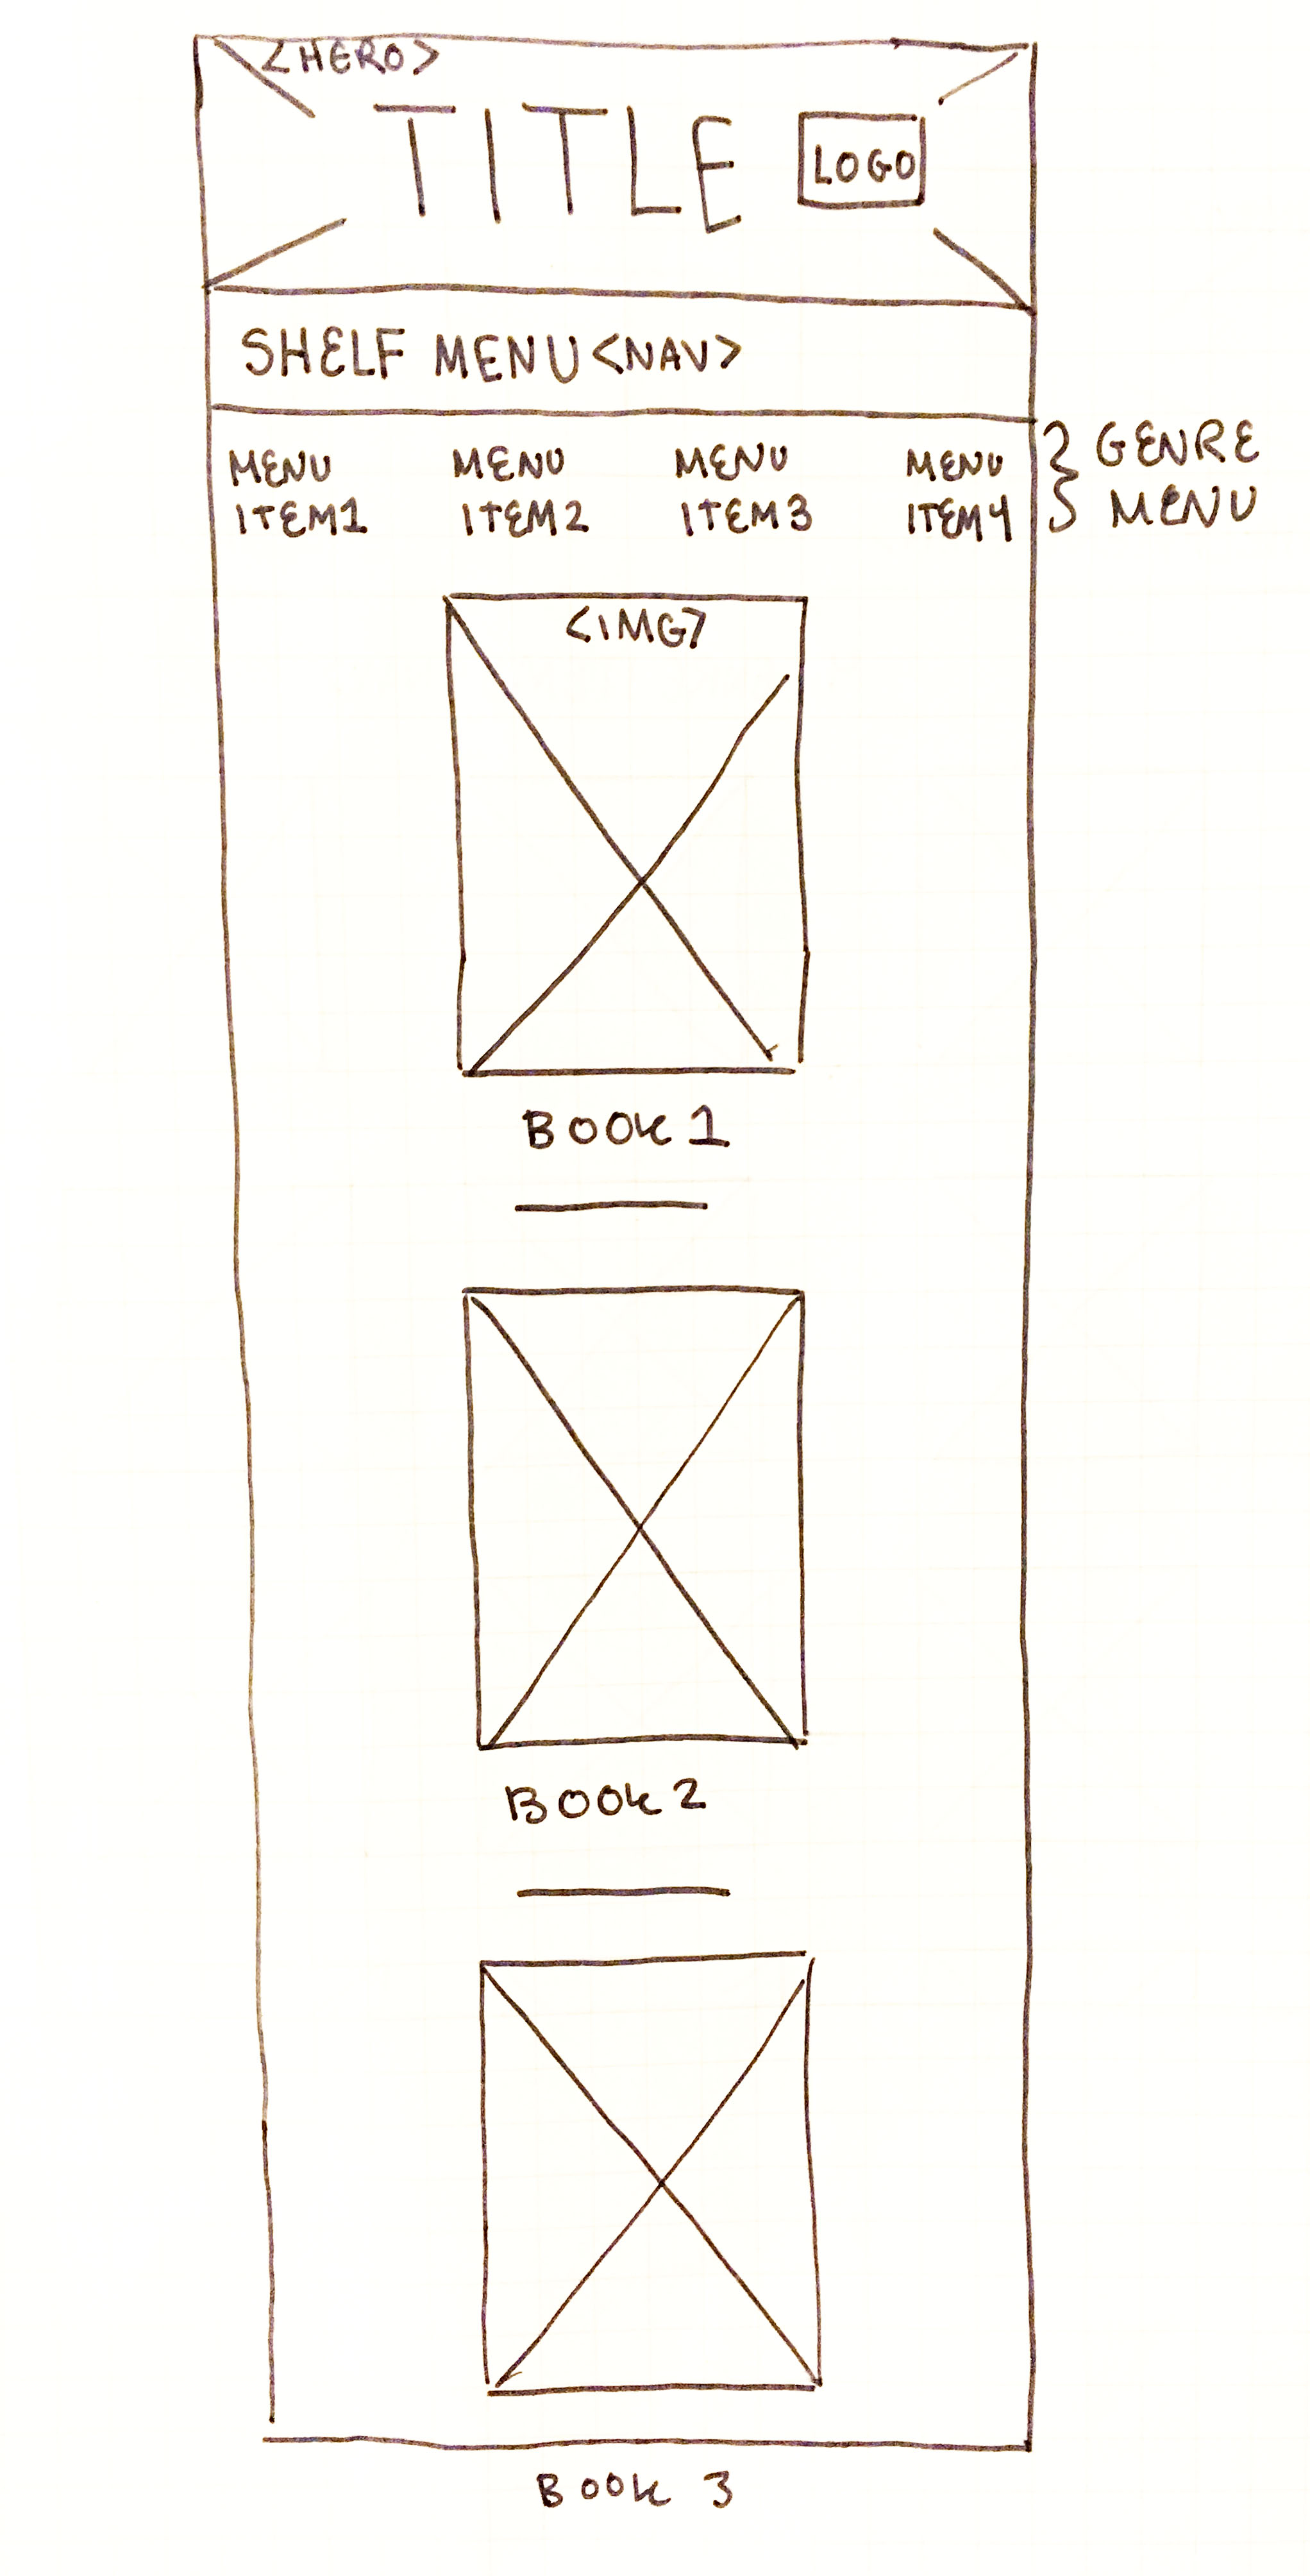 <HERO>
TITLE LOGO
SHELF MENU <NAV>
MENU ITEM1
MENU ITEM2
MENU ITEM3
MENU ITEM4
GENRE MENU
<IMG>
BOOK 1
BOOK 2
BOOK 3